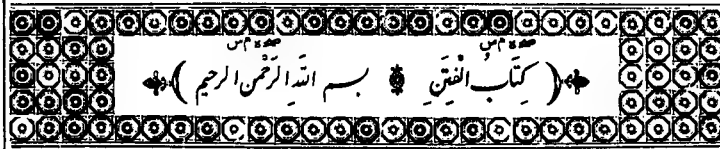 ﴿ كِتَابُ الْفِتَنِ ۞ بسم اللهِ الرَّحْمنِ الرحيم ﴾